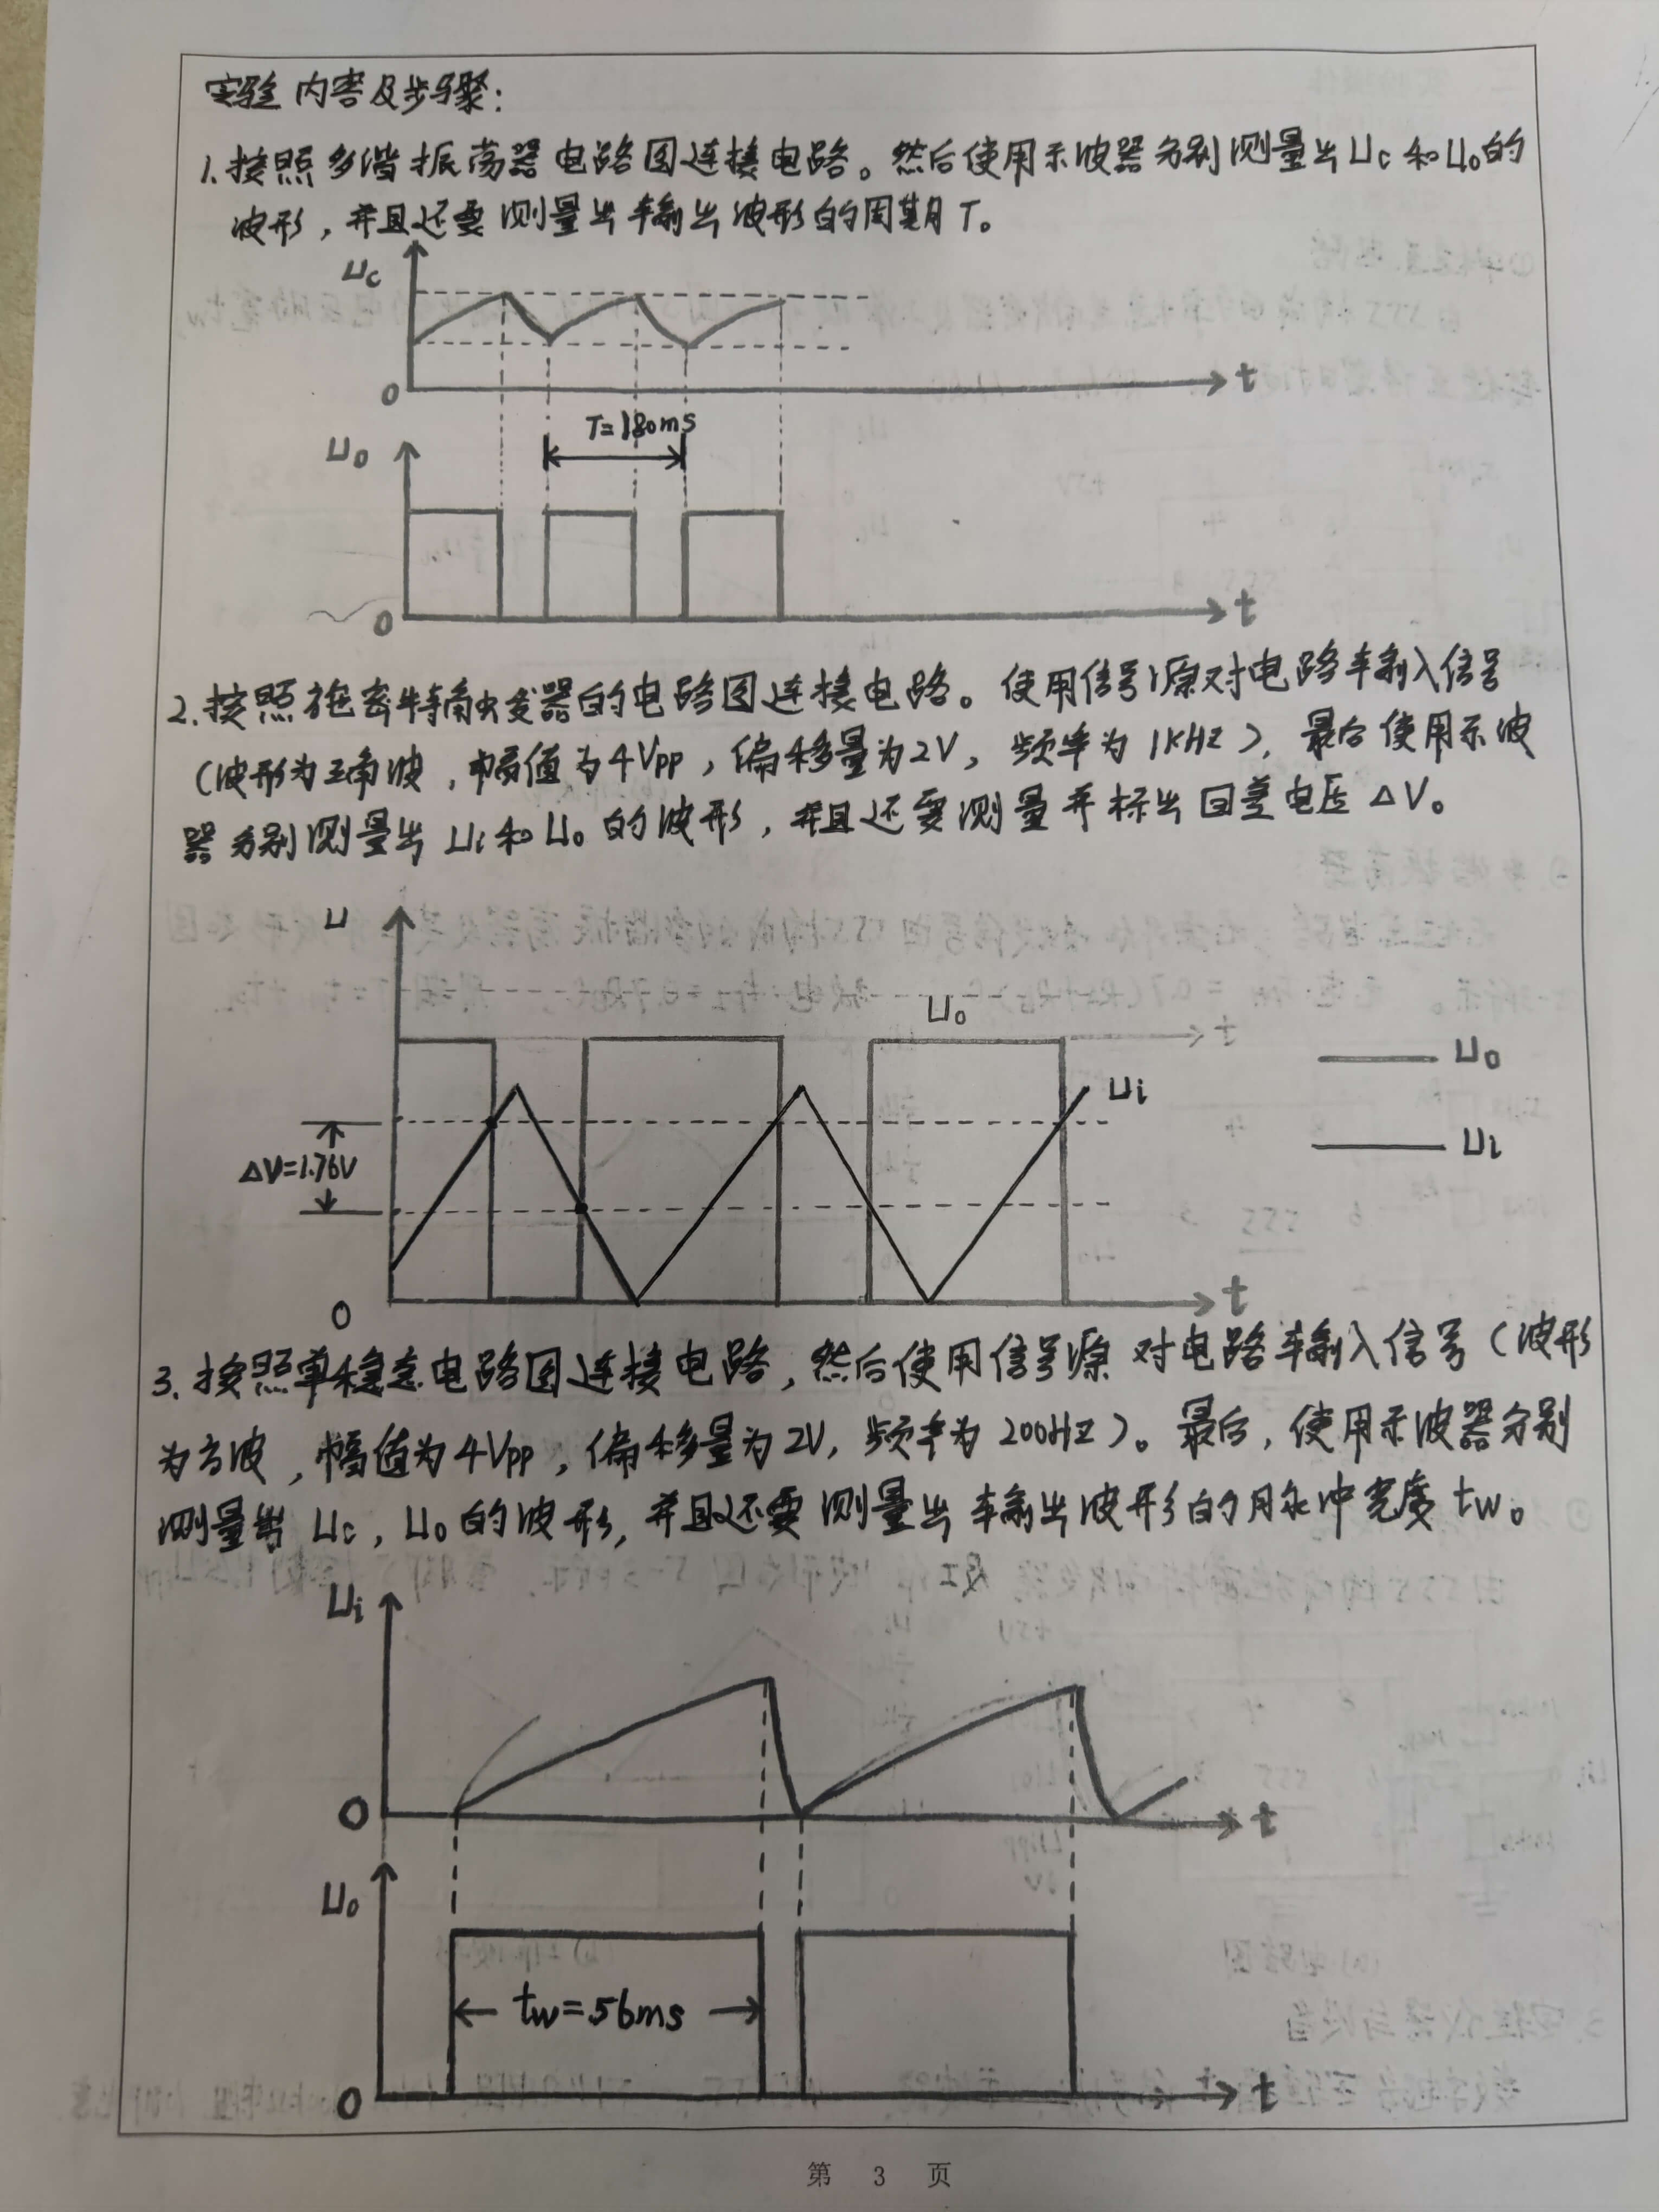 实验内容及步骤:
1.按照多谐振荡器电路图连接电路。然后使用示波器分别测量出Uc和Uo的
波形,并且还要测量出输出波形的周期T。
Uc
0
t
T=180ms
Uo
0
t
2.按照施密特触发器的电路图连接电路。使用信号源对电路输入信号
(波形为三角波,幅值为4Vpp,偏移量为2V,频率为1KHZ),最后使用示波
器分别测量出Ui和Uo的波形,并且还要测量并标出回差电压ΔV。
U
Uo
t
Uo
Ui
Ui
ΔV=1.76V
0
t
3.按照单稳态电路图连接电路,然后使用信号源对电路输入信号(波形
为方波,幅值为4Vpp,偏移量为2V,频率为200HZ)。最后,使用示波器分别
测量出Uc,Uo的波形,并且还要测量出输出波形的脉冲宽度tw。
Ui
0
t
Uo
tw=56ms
0
t
第 3 页